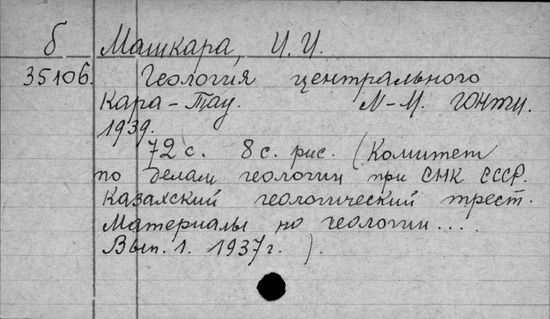 б Машкара, И. И.
35106. Геология центрального
Кара-Тау. М-Л. ГОНТИ.
1939.
72 с. 8 с. рис. (Комитет
по делам геологии при СНК СССР.
Казахский геологический трест.
Материалы по геологии....
Вып. 1. 1937 г. ).